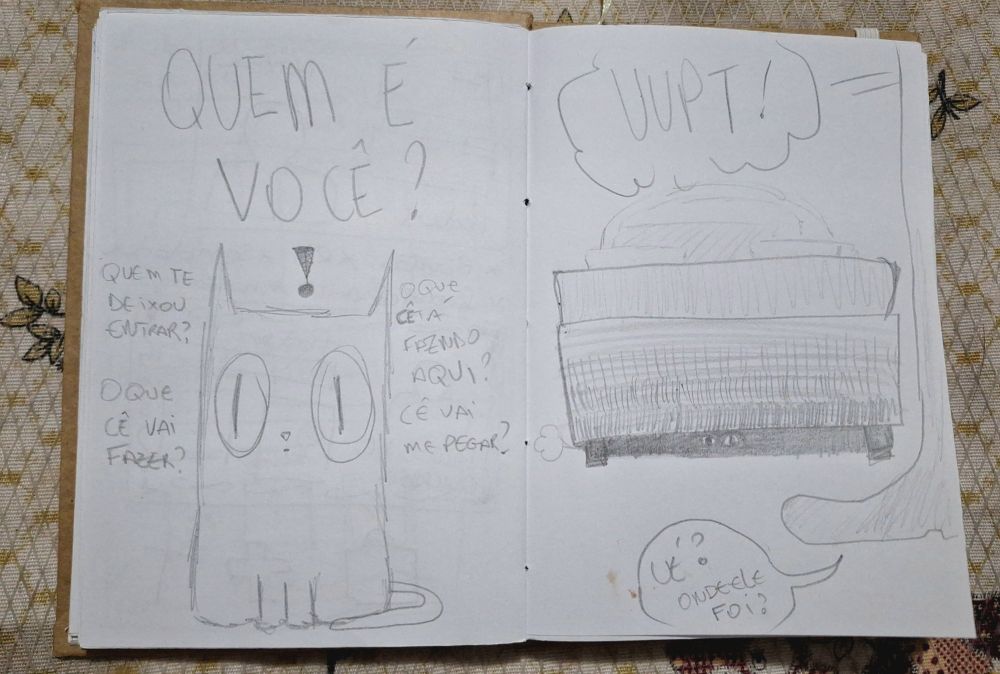 QUEM É
VOCÊ?
!
QUEM TE
DEIXOU
ENTRAR?
O QUE
CÊ VAI
FAZER?
O QUE
CÊ TÁ
FAZENDO
AQUI?
CÊ VAI
ME PEGAR?
VUPT!
UÉ?
ONDE ELE
FOI?